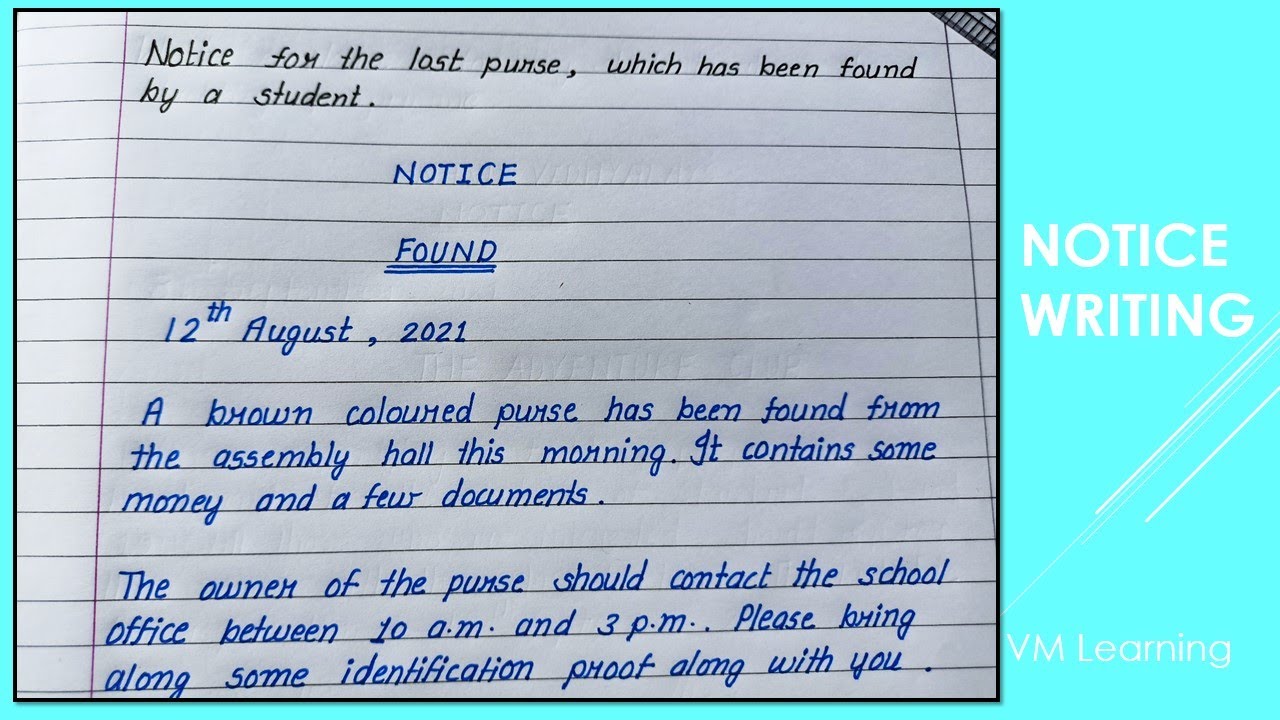 Notice for the lost purse, which has been found
by a student.
NOTICE
FOUND
12th August, 2021
A brown coloured purse has been found from
the assembly hall this morning. It contains some
money and a few documents.
The owner of the purse should contact the school
office between 10 a.m. and 3 p.m.. Please bring
along some identification proof along with you.
NOTICE
WRITING
VM Learning